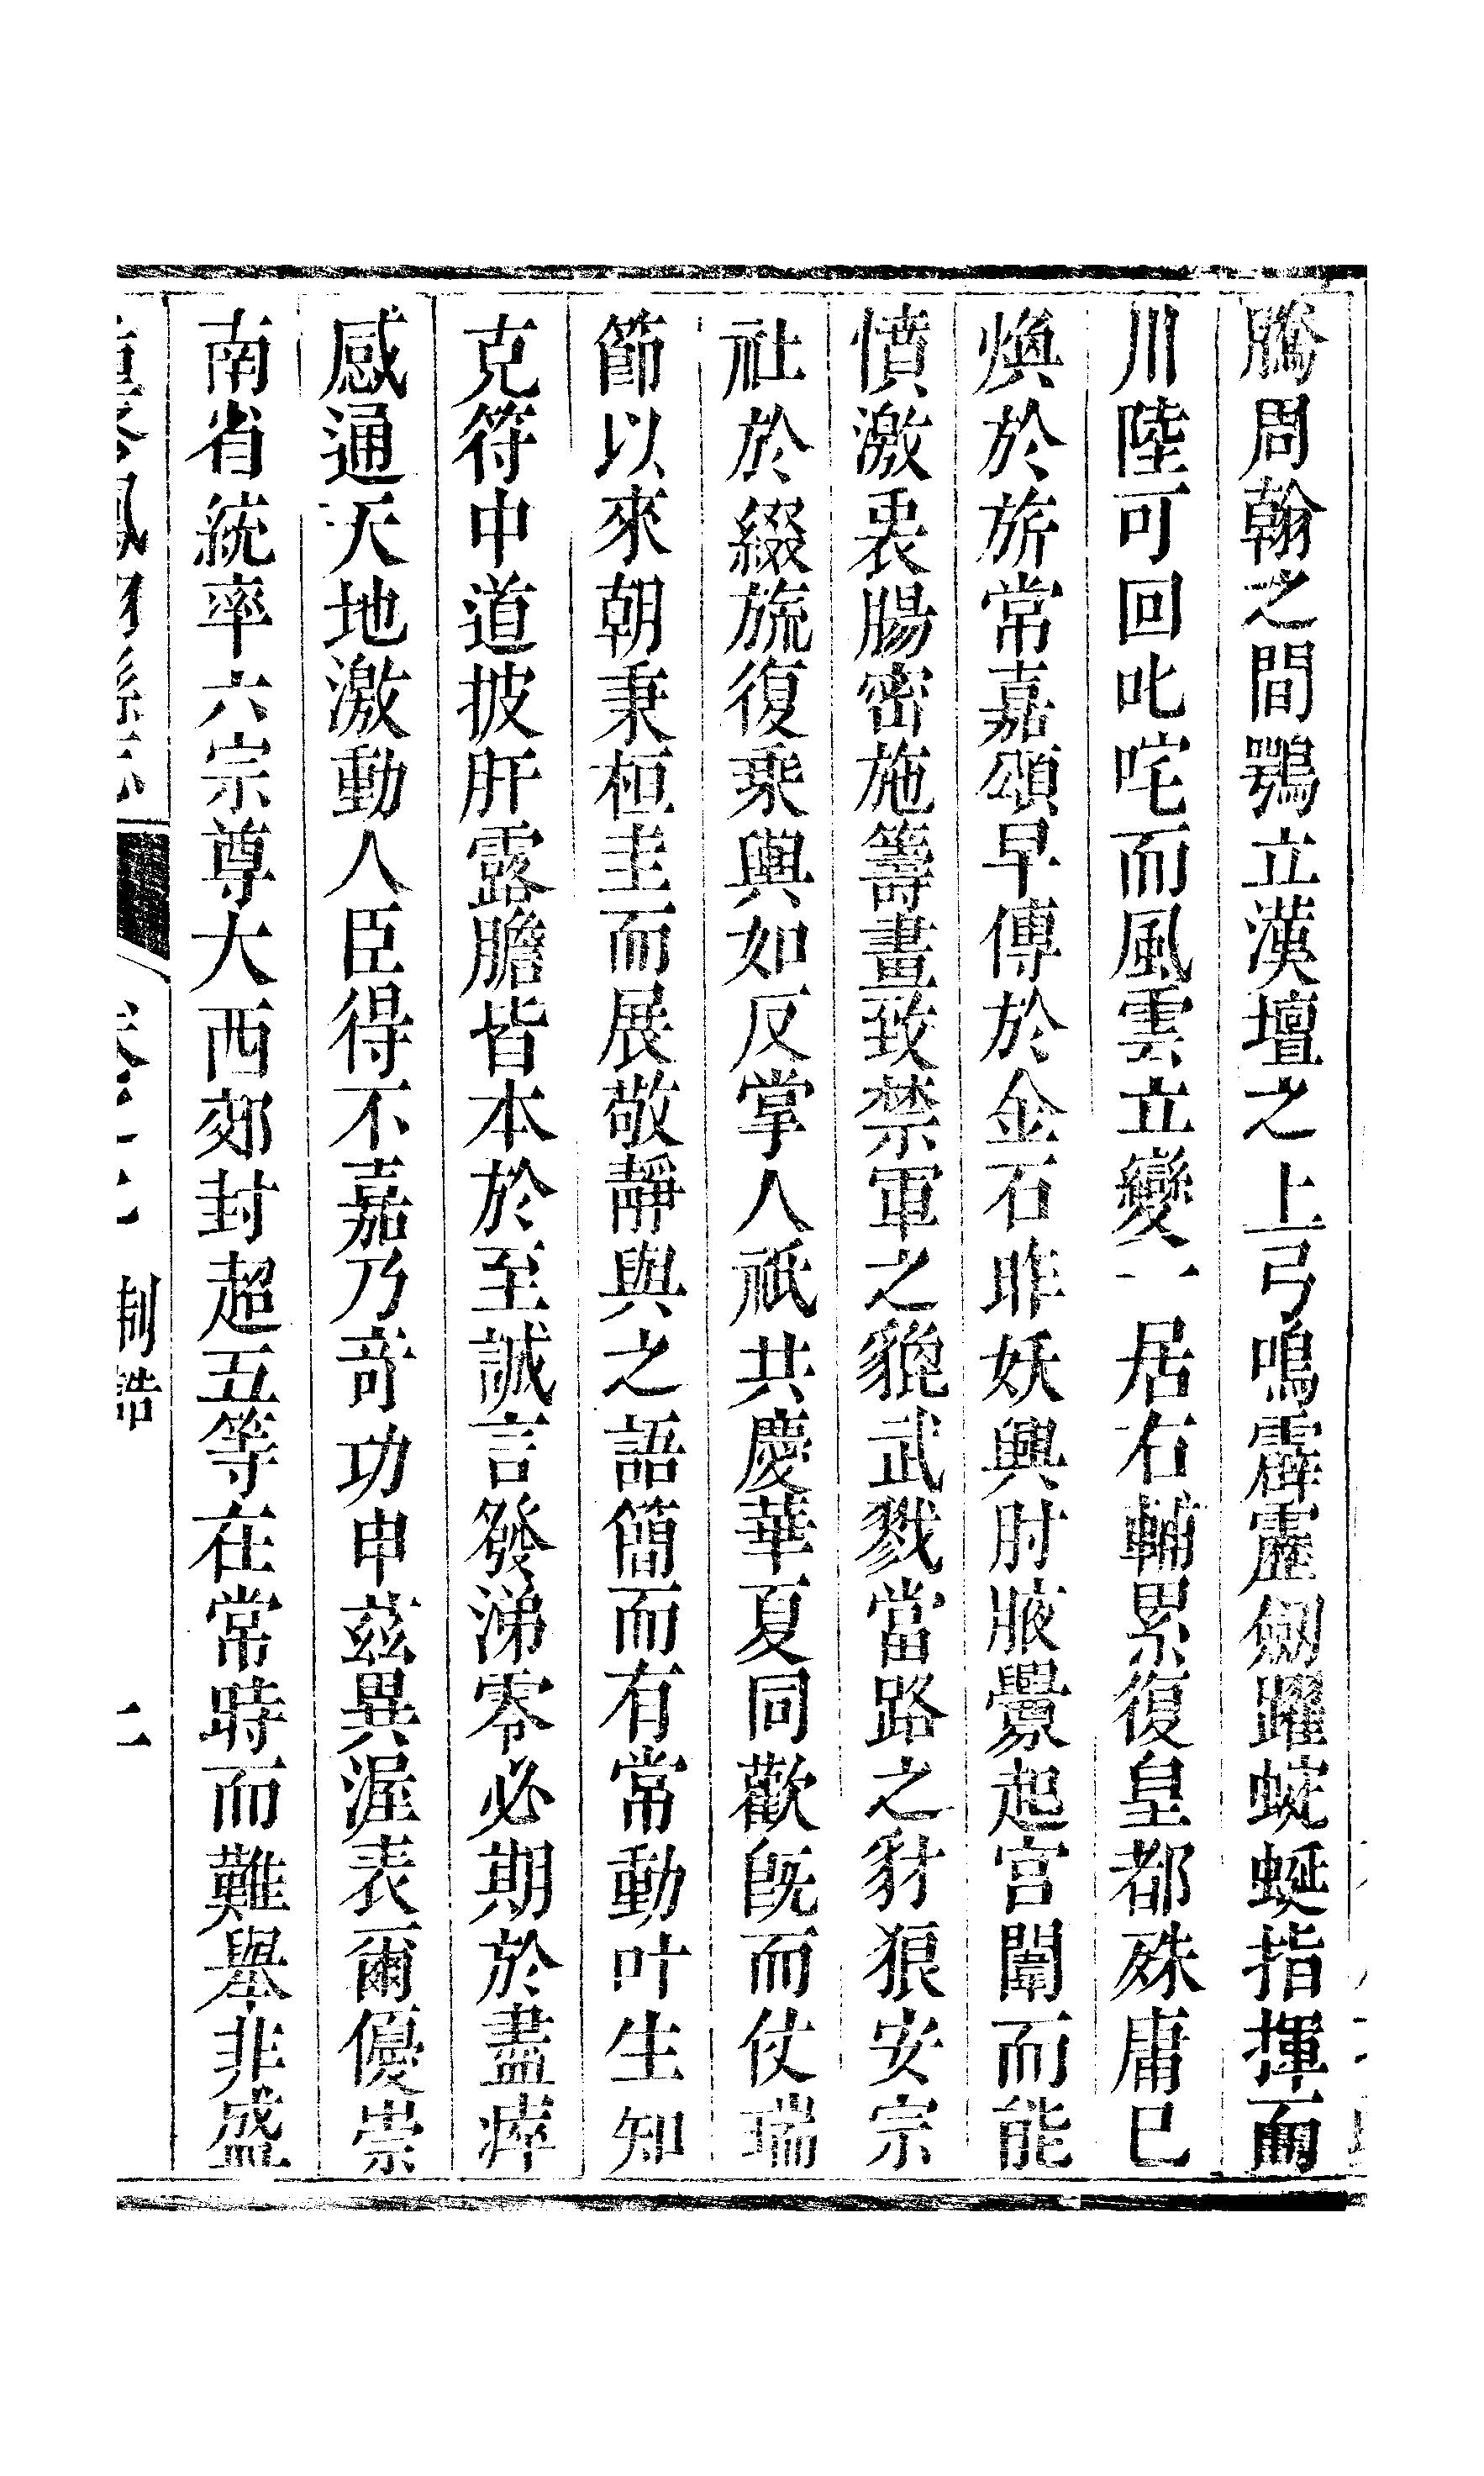 騰周翰之間鶚立漢壇之上弓鳴霹靂劔躍蜿蜒指揮而
川陸可回叱咤而風雲立變一居右輔累復皇都殊庸已
煥於旂常嘉頌早傳於金石昨妖興肘腋釁起宫闈而能
憤激衷腸密施籌畫致禁軍之貔武戮當路之豺狼安宗
社於綴旒復乘輿如反掌人祇共慶華夏同歡旣而仗瑞
節以來朝秉桓圭而展敬靜與之語簡而有常動叶生知
克符中道披肝露膽皆本於至誠言發涕零必期於盡瘁
感通天地激動人臣得不嘉乃竒功申兹異渥表爾優崇
南省統率六宗尊大西郊封超五等在常時而難舉非盛
重修鳳翔縣志
制誥
二